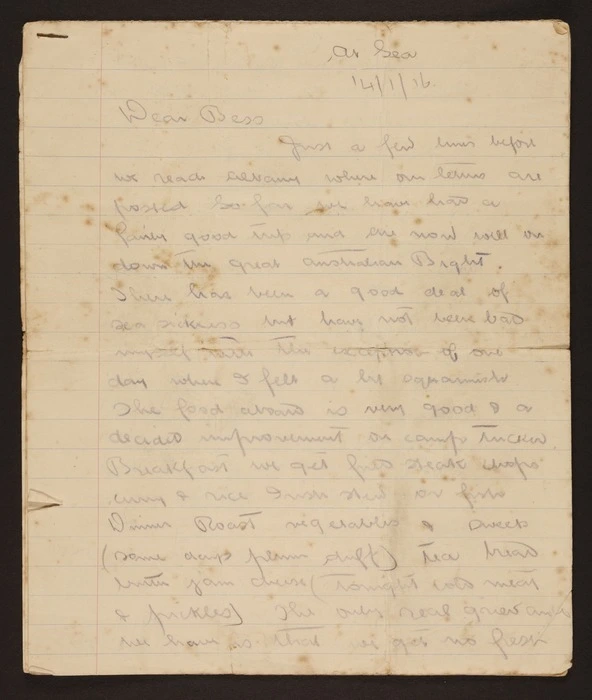 At Sea
14/1/16
Dear Bess
Just a few lines before
we reach Albany where our letters are
posted So far we have had a
fairly good trip and are now well on
down the great Australian Bight.
There has been a good deal of
sea sickness but have not been bad
myself with the exception of one
day where I felt a bit squeamish
The food aboard is very good & a
decided improvement on camp tucker
Breakfast we get fried steak chops
curry & rice Irish stew or fish
Dinner Roast vegetables & sweets
(some days plum duff) tea bread
butter jam cheese (tonight cold meat
& pickles) The only real grievance
we have is that we get no fresh